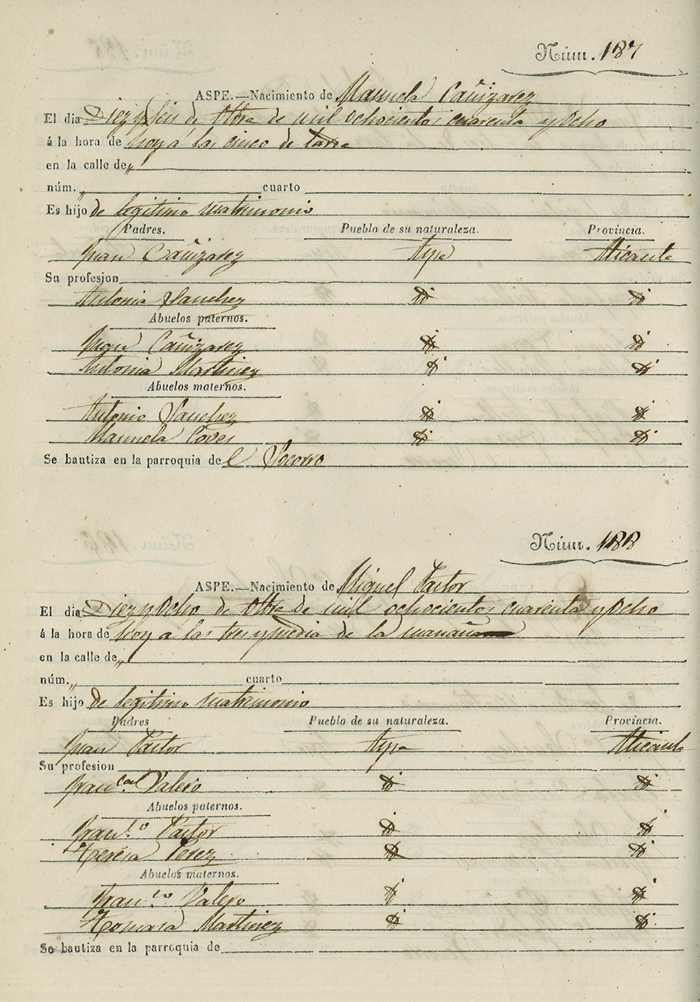 Núm. 187
ASPE.—Nacimiento de Manuela Cañizarez
El dia Diez y seis de 8bre de mil ochocientos cuarenta y Ocho
á la hora de hoy á las cinco de tarde
en la calle de „
núm. „ cuarto
Es hijo de legitimo matrimonio
Padres. Pueblo de su naturaleza. Provincia.
Juan Cañizarez Aspe Alicante
Su profesion
Antonia Sanchez id id
Abuelos paternos.
Juan Cañizarez id id
Antonia Martinez id id
Abuelos maternos.
Antonio Sanchez id id
Manuela Cov id id
Se bautiza en la parroquia de l Socorro
Núm. 188
ASPE.—Nacimiento de Miguel Pastor
El dia Diez y Ocho de 8bre de mil ochocientos cuarenta y Ocho
á la hora de hoy a las tres y media de la manaña
en la calle de „
núm. „ cuarto
Es hijo de legitimo matrimonio
Padres Pueblo de su naturaleza. Provincia.
Juan Pastor Aspe Alicante
Su profesion
Fran.ca Valero id id
Abuelos paternos.
Fran.co Pastor id id
Teresa Perez id id
Abuelos maternos.
Fran.co Valero id id
Tomasa Martinez id id
Se bautiza en la parroquia de